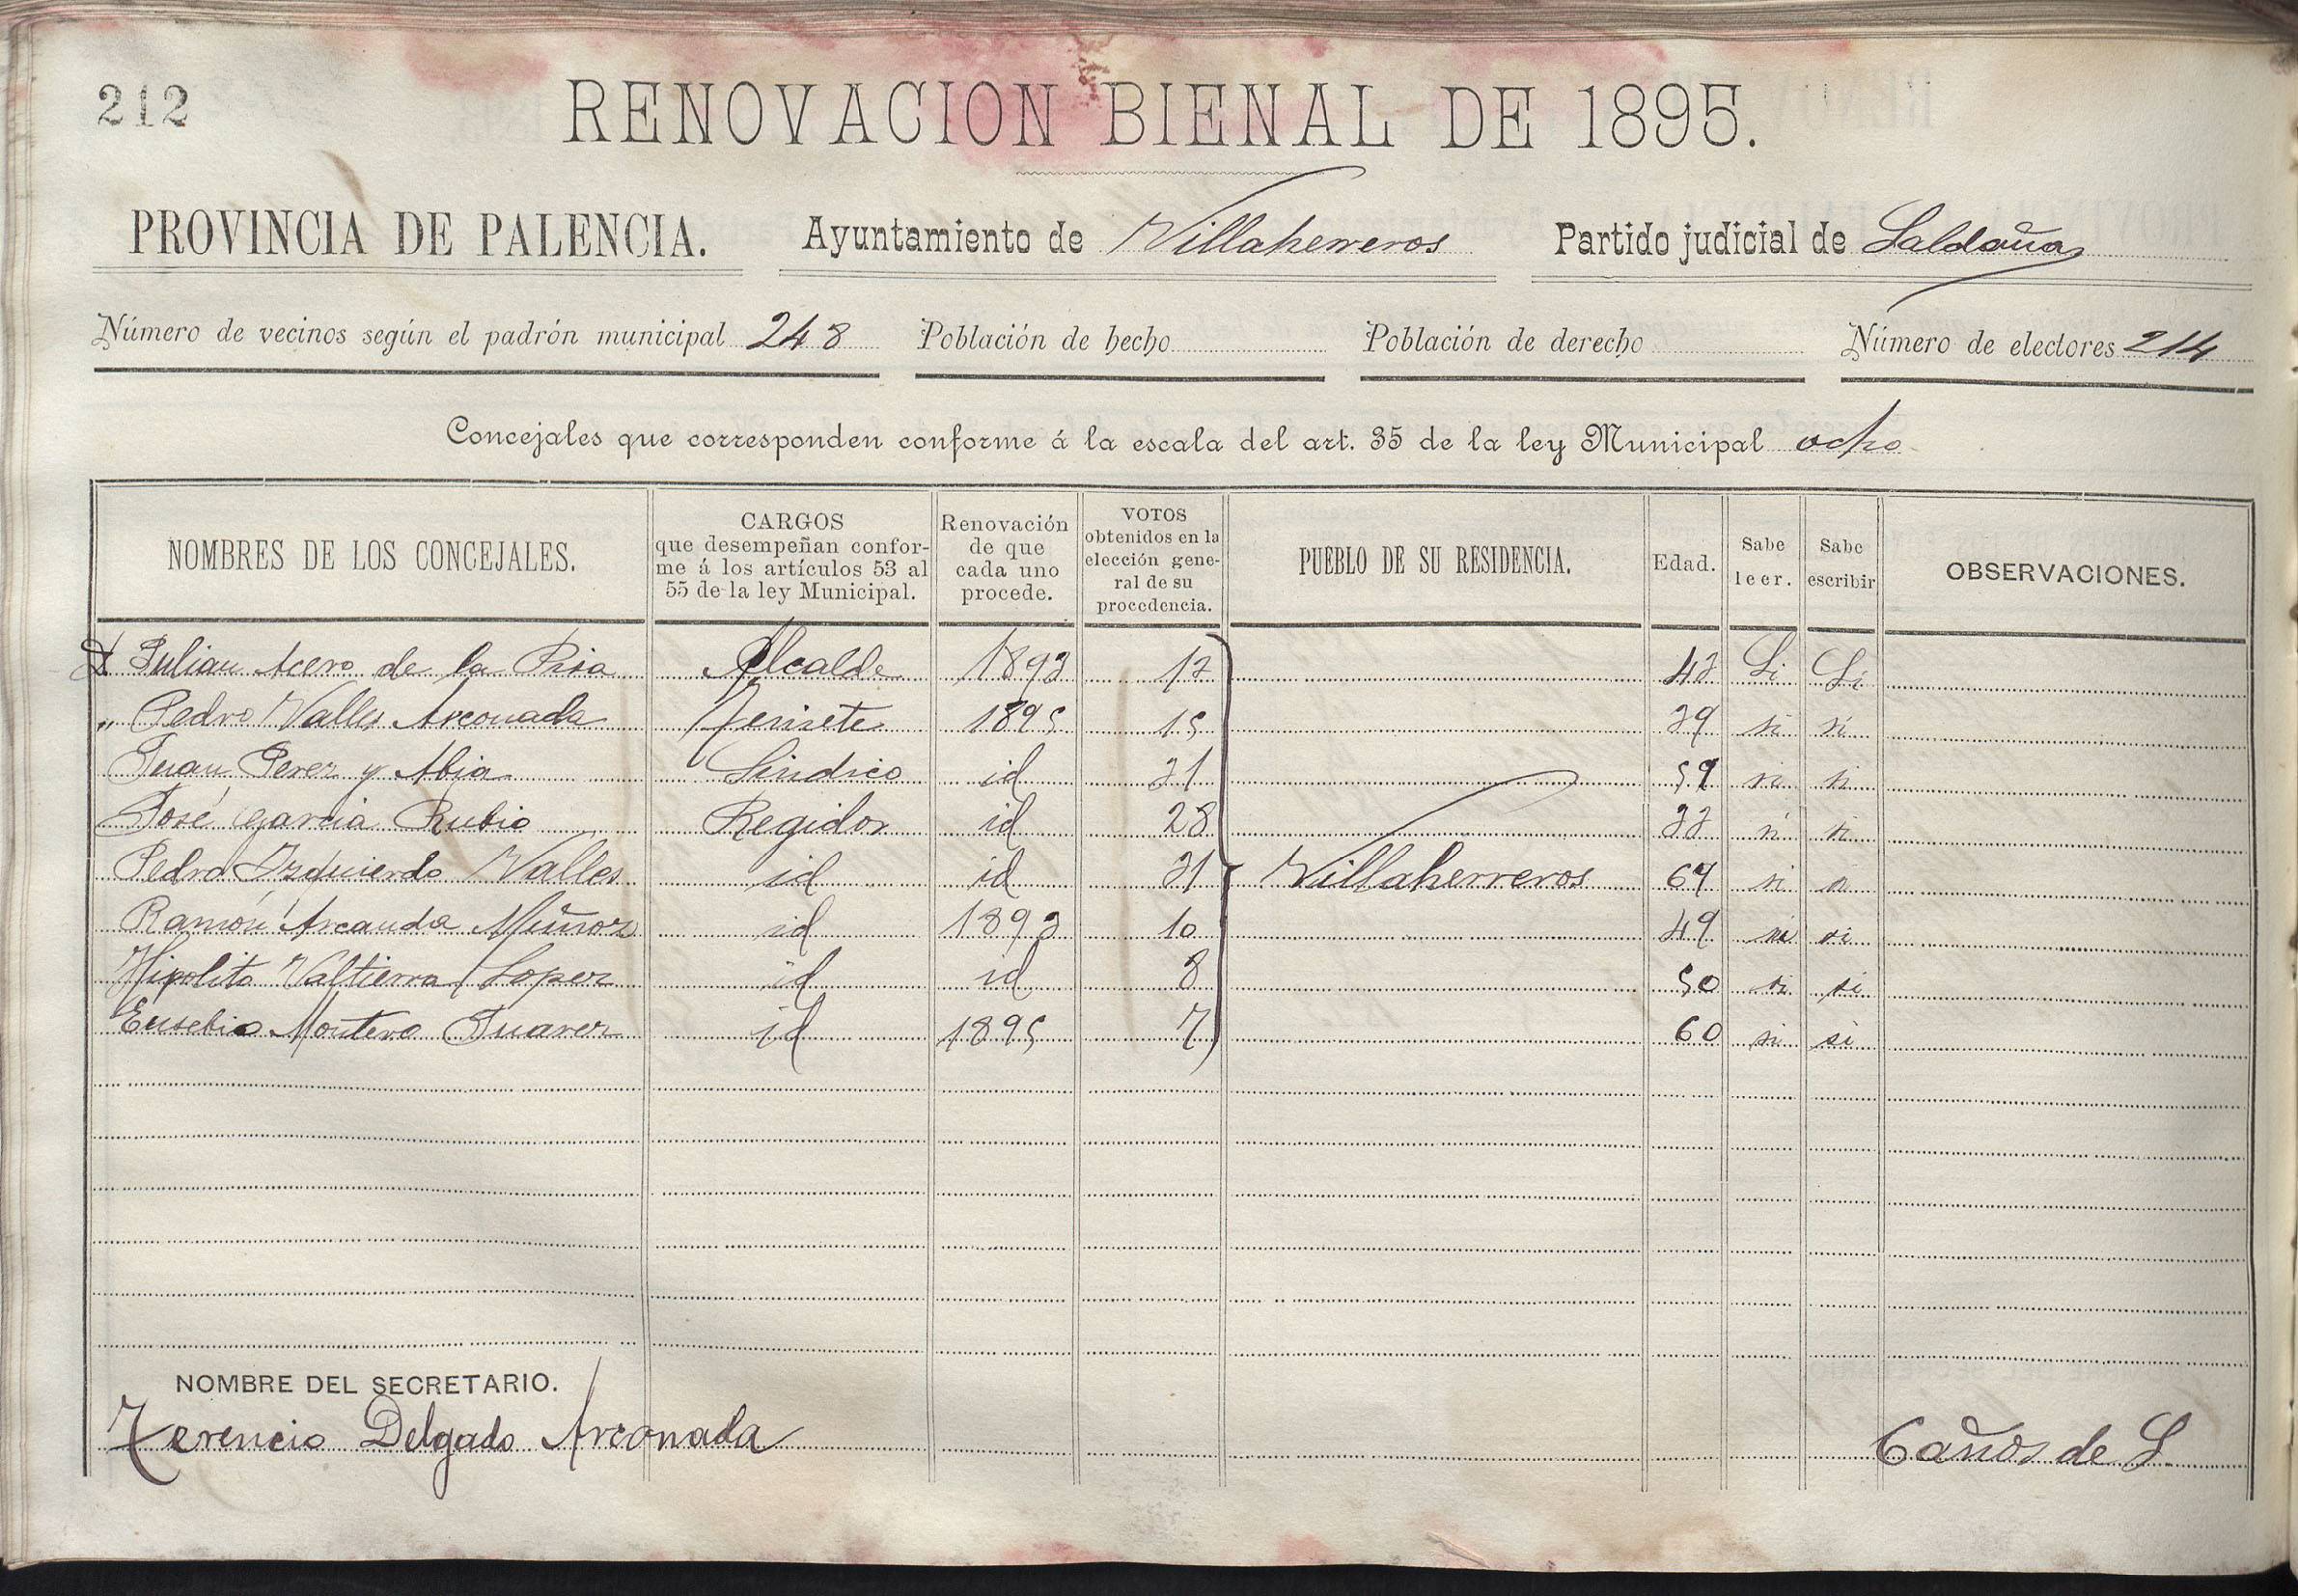 212
RENOVACION BIENAL DE 1895.
PROVINCIA DE PALENCIA. Ayuntamiento de Villaherreros Partido judicial de Saldaña
Número de vecinos según el padrón municipal 248 Población de hecho Población de derecho Número de electores 214
Concejales que corresponden conforme á la escala del art. 35 de la ley Municipal ocho
NOMBRES DE LOS CONCEJALES. CARGOS que desempeñan conforme á los artículos 53 al 55 de la ley Municipal. Renovación de que cada uno procede. VOTOS obtenidos en la elección general de su procedencia. PUEBLO DE SU RESIDENCIA. Edad. Sabe leer. Sabe escribir OBSERVACIONES.
Julian Acero de la Alcalde 1893 Si Si
" Pedro Valles Arconada Teniete 1895 15 si si
Juan Perez y Abia Sindico id 21 59 si si
José Garcia Rubio Regidor id 28 si si
Pedro Izquierdo Valles id id 21 Villaherreros 64 si si
Ramón Arcauda Muñoz id 1893 10 49 si si
Hipolito Valtierra Lopez id id 8 50 si si
Eusebio Montero Juarez id 1895 7 60 si si
NOMBRE DEL SECRETARIO.
Terencio Delgado Arconada 6 años de S.